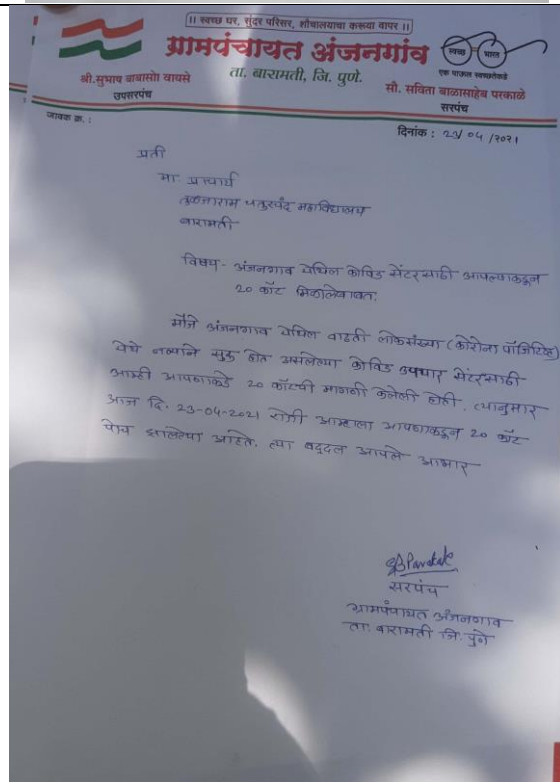 ।। स्वच्छ घर, सुंदर परिसर, शौचालयाचा करूया वापर ।।
ग्रामपंचायत अंजनगांव
स्वच्छ भारत
एक पाऊल स्वच्छतेकडे
ता. बारामती, जि. पुणे.
श्री.सुभाष बाबासो वायसे
उपसरपंच
सौ. सविता बाळासाहेब परकाळे
सरपंच
जावक क्र. :
दिनांक : 23/04/2021
प्रती
मा. प्राचार्य
तुळजाराम चतुरचंद महाविद्यालय
बारामती
विषय - अंजनगाव येथिल कोविड सेंटरसाठी आपल्याकडून
20 कॉट मिळालेबाबत.
मौजे अंजनगाव येथिल वाढती लोकसंख्या (कोरोना पॉजिटिव्ह)
येथे नव्याने सुरु होत असलेल्या कोविड उपचार सेंटरसाठी
आम्ही आपणाकडे 20 कॉटची मागणी केलेली होती. त्यानुसार
आज दि. 23-04-2021 रोजी आम्हाला आपणाकडून 20 कॉट
पोच झालेल्या आहेत. त्या बद्दल आपले आभार
SBParakale
सरपंच
ग्रामपंचायत अंजनगाव
ता. बारामती जि. पुणे